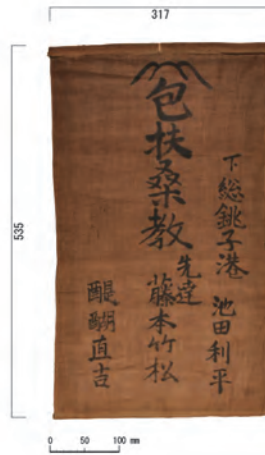 317
535
下総銚子港 池田利平
包扶桑教
先達
藤本竹松
醍醐直吉
0 50 100 mm